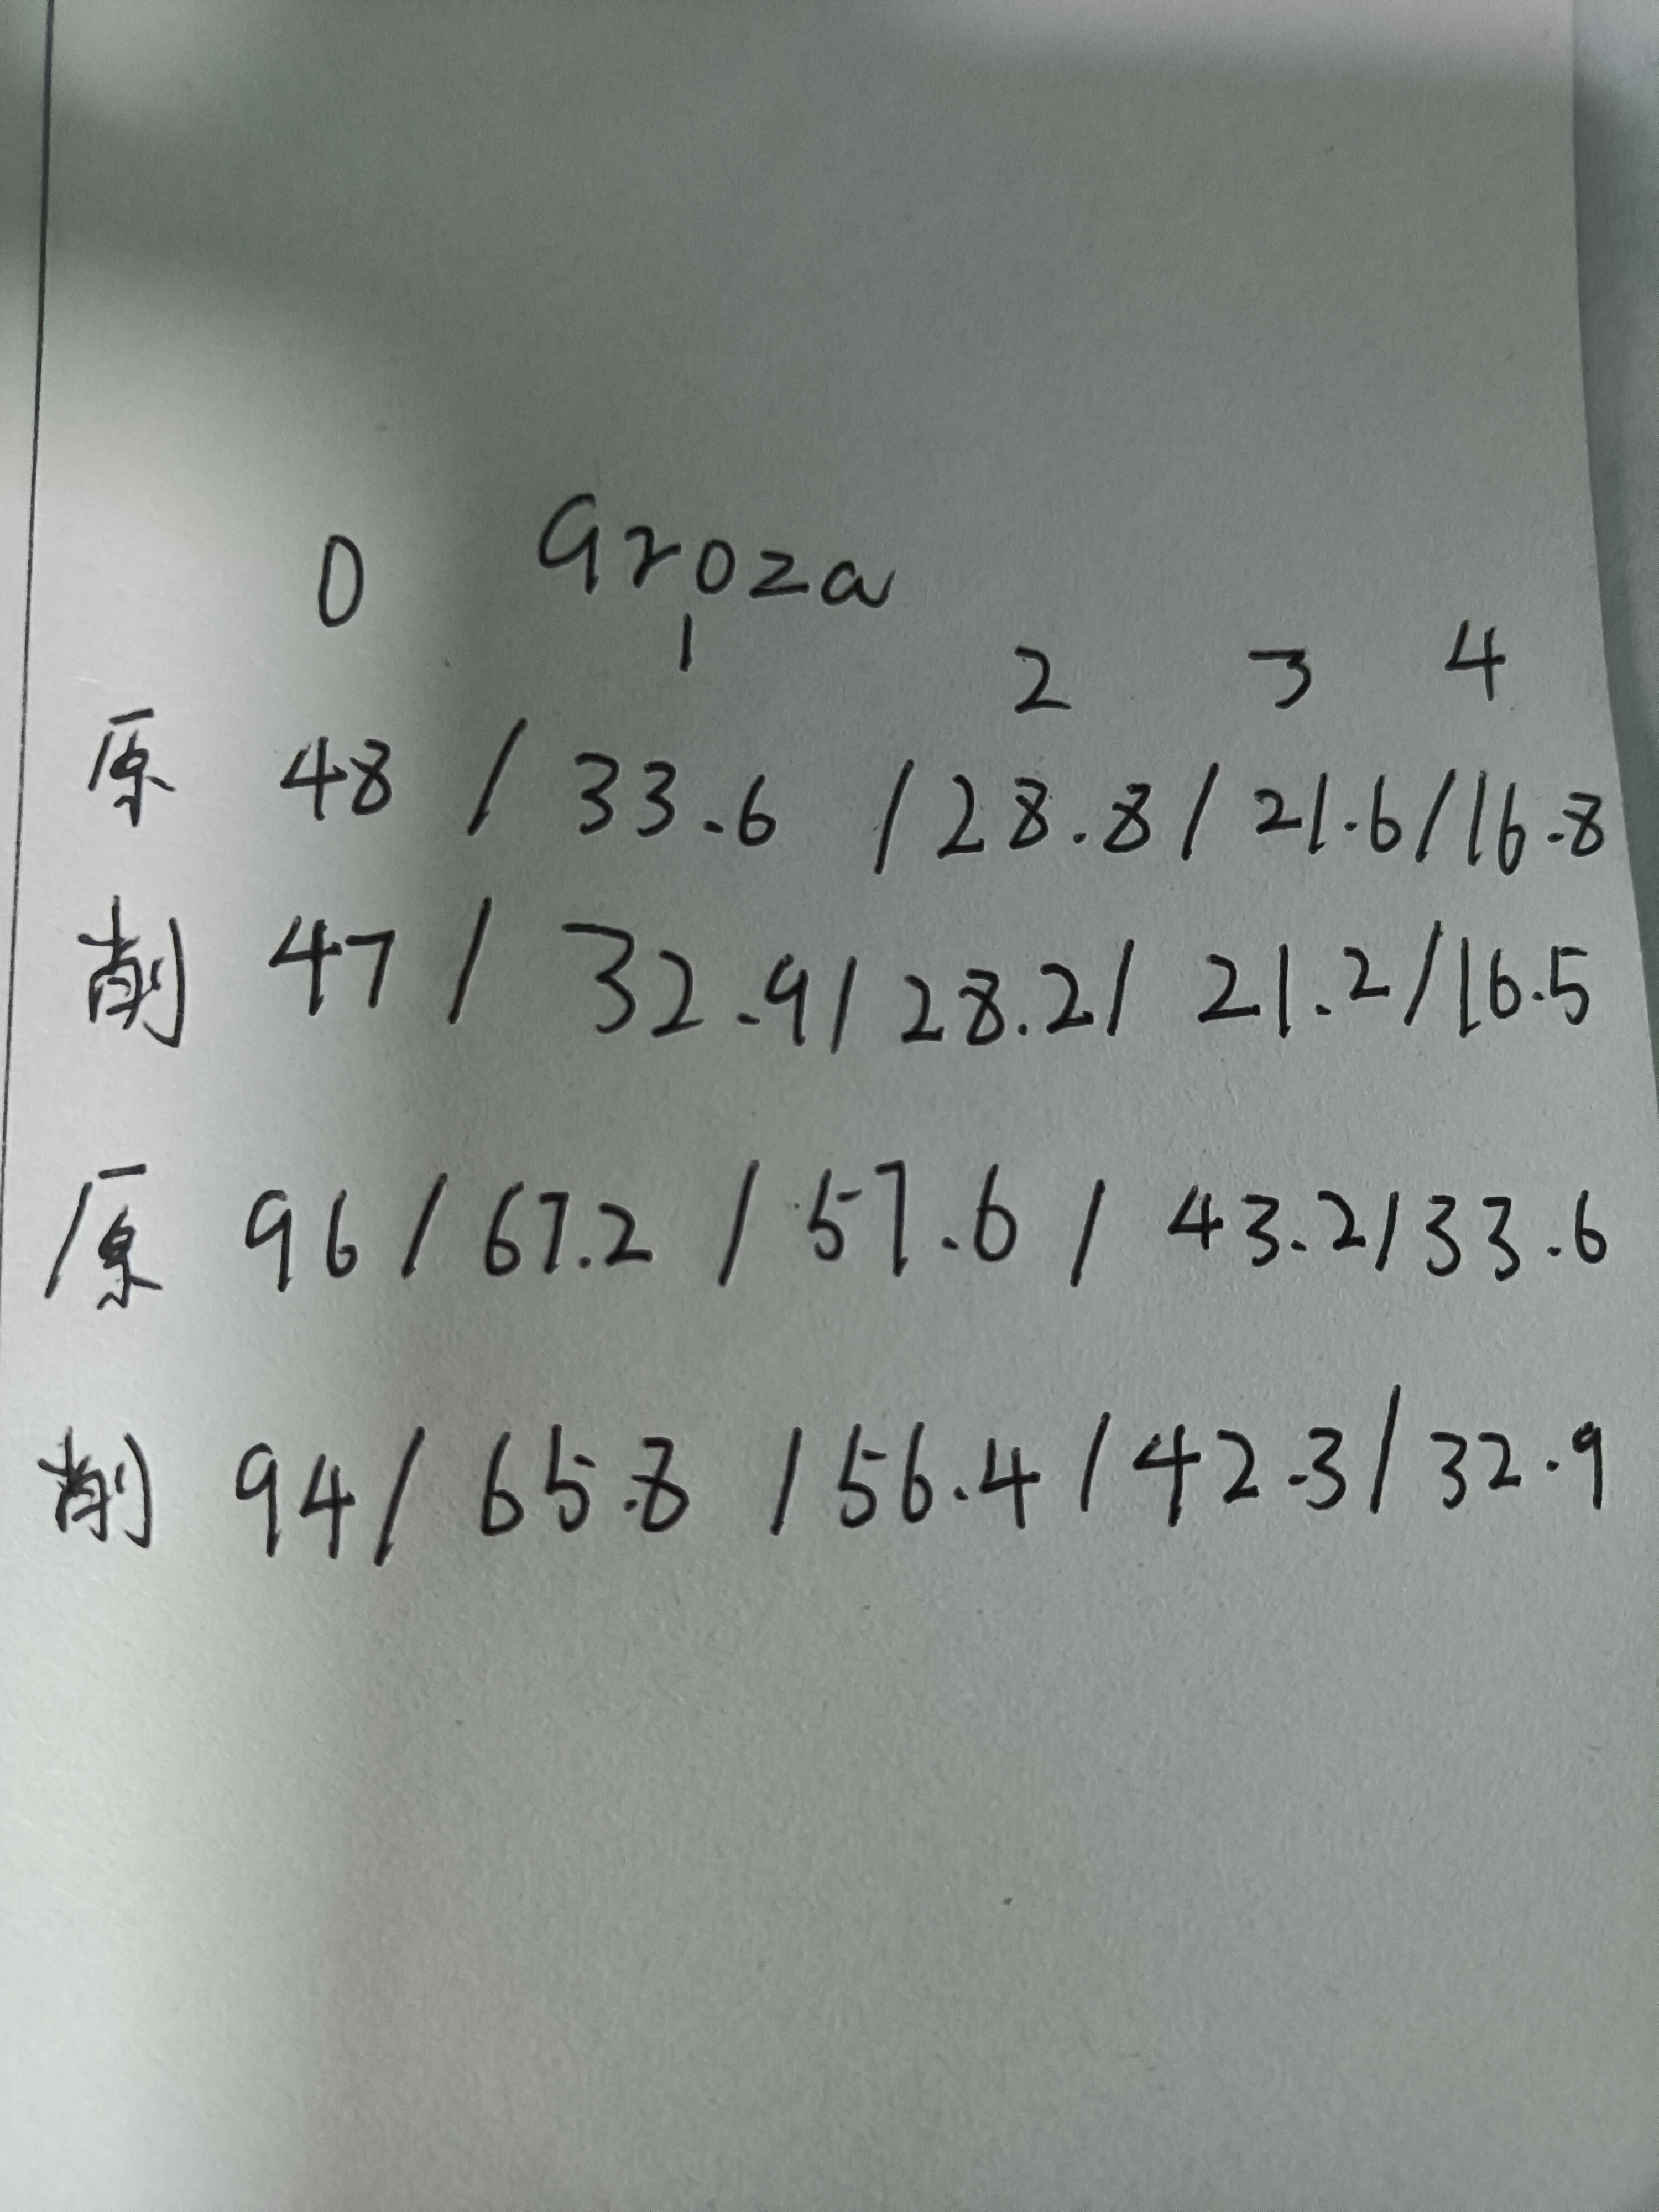 0 Groza
1 2 3 4
原 48 / 33.6 / 28.8 / 21.6 / 16.8
削 47 / 32.9 / 28.2 / 21.2 / 16.5
原 96 / 67.2 / 57.6 / 43.2 / 33.6
削 94 / 65.8 / 56.4 / 42.3 / 32.9